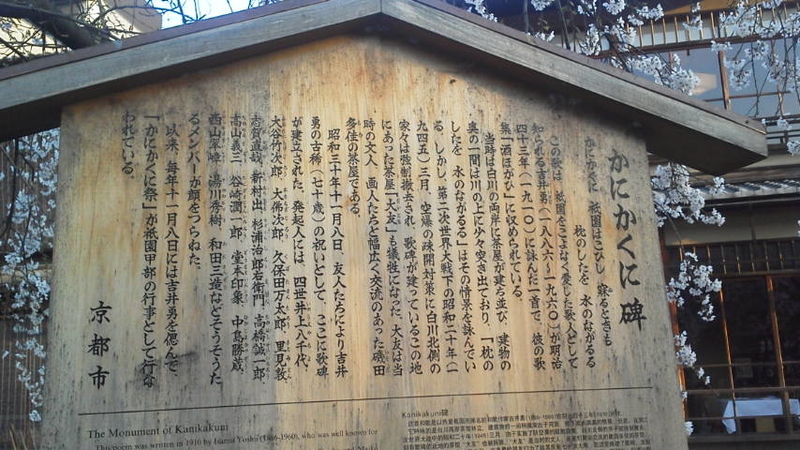 かにかくに碑
かにかくに 祇園はこひし 寐るときも
枕のしたを 水のながるる
この歌は、祇園をこよなく愛した歌人として
知られる吉井勇(一八八六〜一九六〇)が明治
四十三年(一九一〇)に詠んだ一首で、彼の歌
集『酒ほがひ』に収められている。
当時は白川の両岸に茶屋が建ち並び、建物の
奥の一間は川の上に少々突き出ており、「枕の
したを 水のながるる」はその情景を詠んでい
る。しかし、第二次世界大戦下の昭和二十年(一
九四五)三月、空爆の疎開対策に白川北側の
家々は強制撤去され、歌碑が建っているこの地
にあった茶屋「大友」も犠牲になった。大友は当
時の文人、画人たちと幅広く交流のあった磯田
多佳の茶屋である。
昭和三十年十一月八日、友人たちにより吉井
勇の古稀(七十歳)の祝いとして、ここに歌碑
が建立された。発起人には、四世井上八千代、
大谷竹次郎、大佛次郎、久保田万太郎、里見弴、
志賀直哉、新村出、杉浦治郎右衛門、高橋誠一郎、
高山義三、谷崎潤一郎、堂本印象、中島勝蔵、
西山翠嶂、湯川秀樹、和田三造などそうそうた
るメンバーが顔をつらねた。
以来、毎年十一月八日には吉井勇を偲んで、
「かにかくに祭」が祇園甲部の行事として行な
われている。
京都市
The Monument of Kanikakuni
This poem was written in 1910 by Isamu Yoshii (1886-1960), who was well known for
Kanikakuni碑